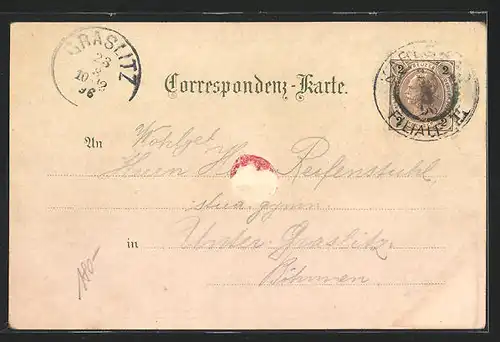 GRASLITZ
23
96
Correspondenz-Karte.
An Wohlgeb
Herrn H. Reifenstuhl
stud. gymn
in Unter-Graslitz
Böhmen